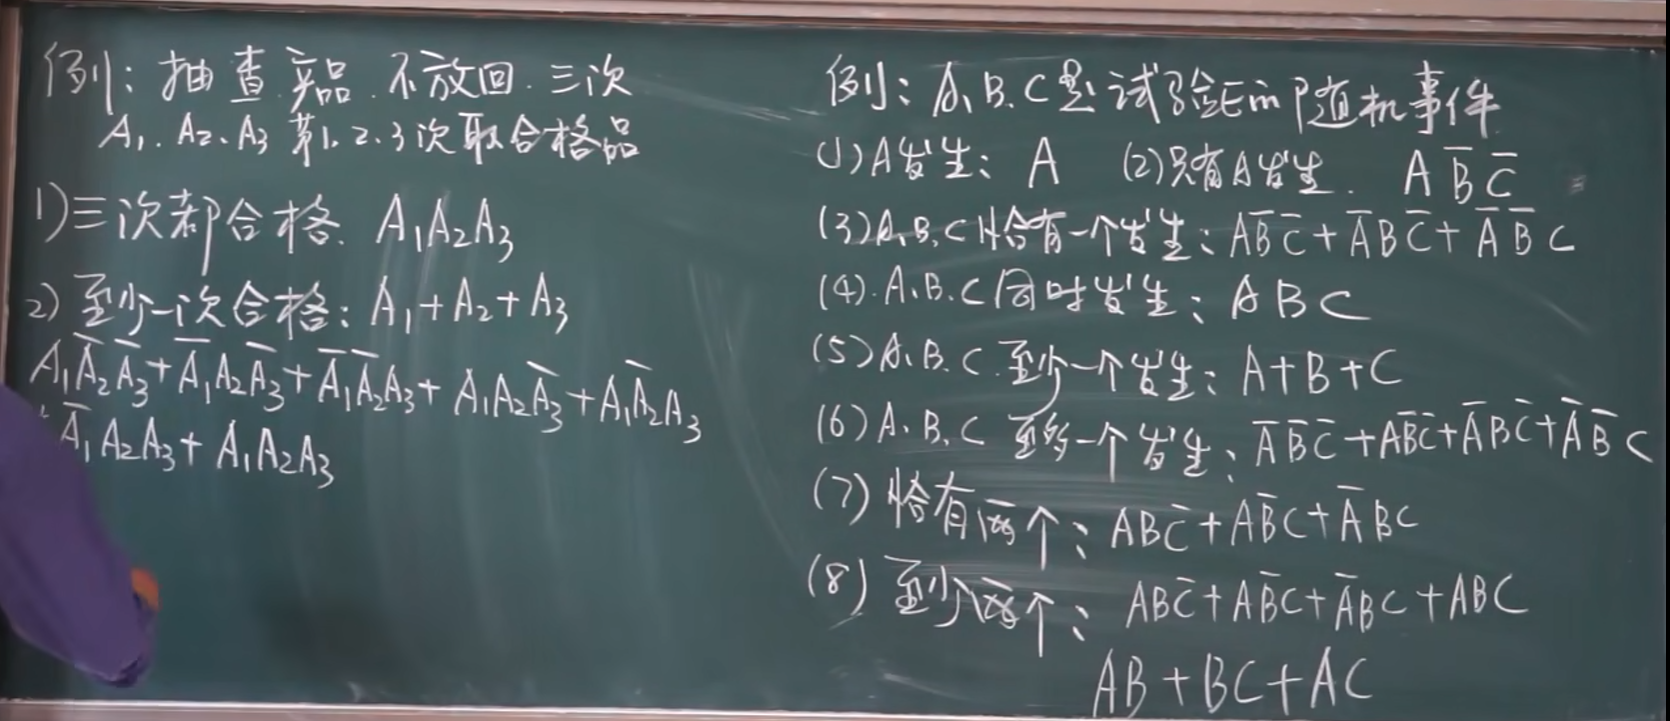 例: 抽查产品.不放回.三次
A₁.A₂、A₃ 第1.2.3次取合格品
1)三次都合格. A₁A₂A₃
2)至少一次合格: A₁+A₂+A₃
A₁A̅₂A̅₃+A̅₁A₂A̅₃+A̅₁A̅₂A₃+A₁A₂A̅₃+A₁A̅₂A₃
+A̅₁A₂A₃+A₁A₂A₃
例: A、B、C是试验E的随机事件
(1)A发生: A (2)只有A发生. AB̅C̅
(3)A、B、C恰有一个发生: AB̅C̅+A̅BC̅+A̅B̅C
(4).A、B、C同时发生: ABC
(5)A、B、C.至少一个发生: A+B+C
(6)A、B、C 至多一个发生: A̅B̅C̅+AB̅C̅+A̅BC̅+A̅B̅C
(7)恰有两个: ABC̅+AB̅C+A̅BC
(8)至少两个: ABC̅+AB̅C+A̅BC+ABC
AB+BC+AC